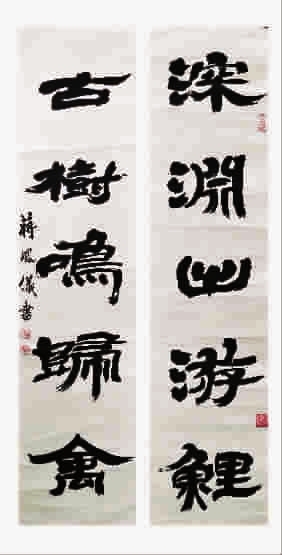 深淵出游鯉
古樹鳴歸禽
蔣儀書